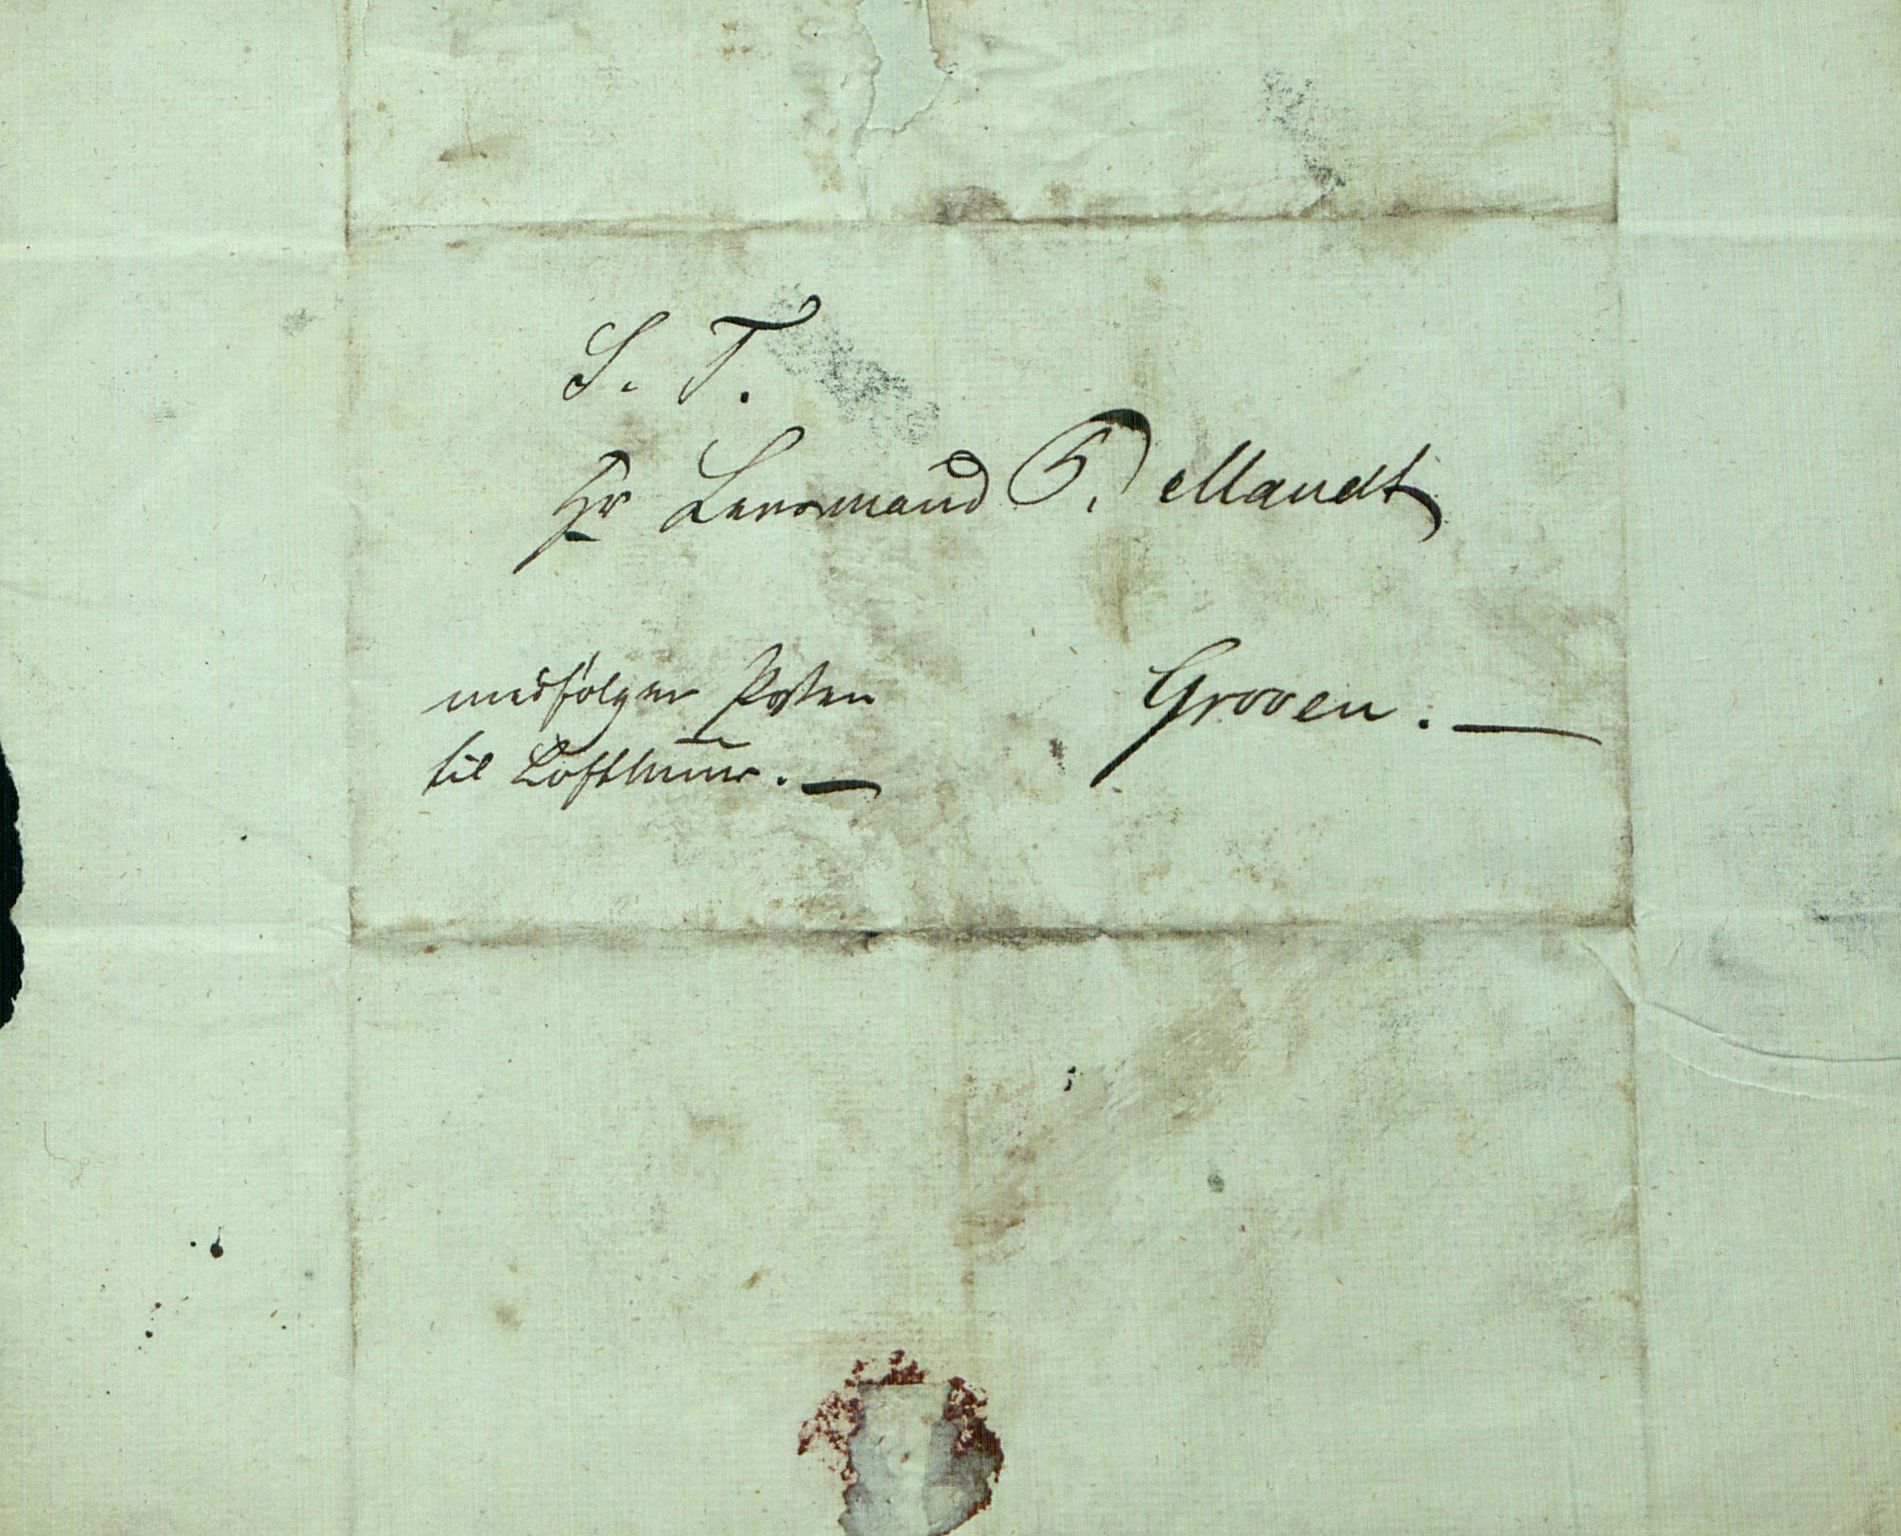 S. T.
Hr Lensmand T. Mandt
Grooen. —
medfølger Posten
til Lofthuus. —